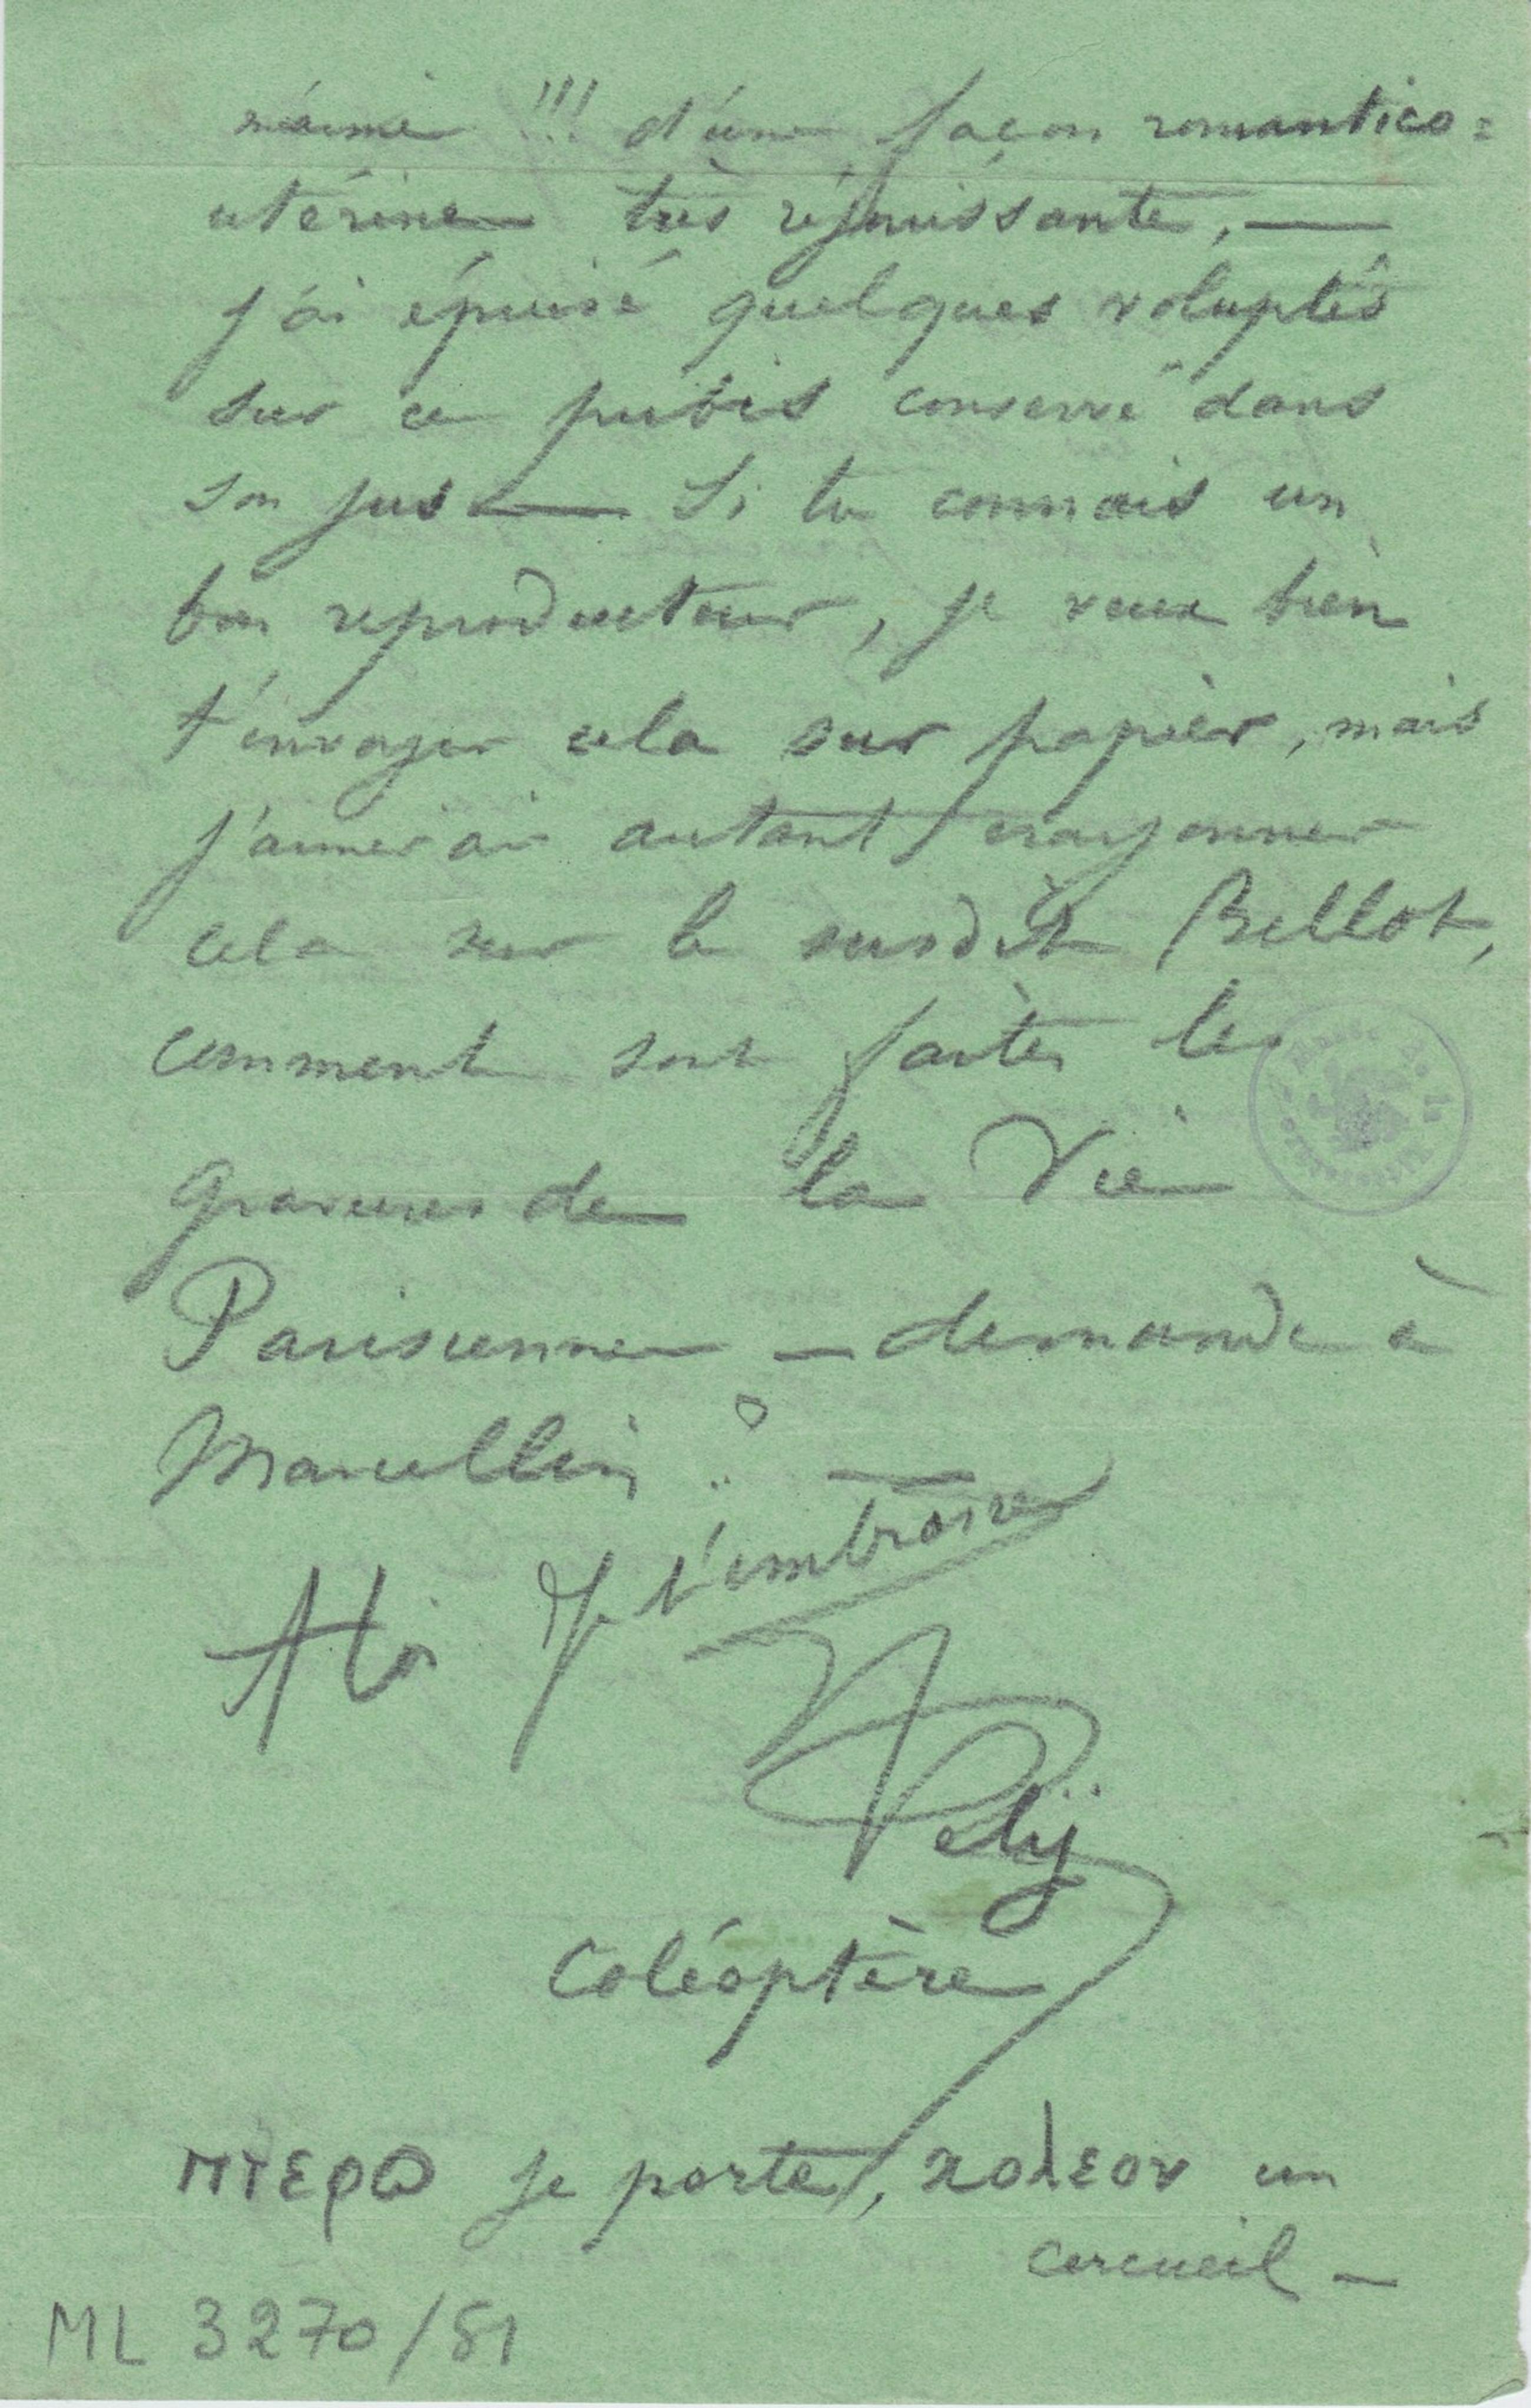 m'aime !!! d'une façon romantico=
utérine très réjouissante, —
j'ai épuisé quelques voluptés
sur ce pubis conservé dans
son jus — Si tu connais un
bon reproducteur, je veux bien
t'envoyer cela sur papier, mais
j'aimerai autant crayonner
cela sur le susdit Bellot,
comment sont faites les
gravures de la Vie
Parisienne — demande à
Marcellin. —
A toi Je t'embrasse
Fély
Coléoptère
πτερο je porte, κολεον un
cercueil —
ML 3270/81